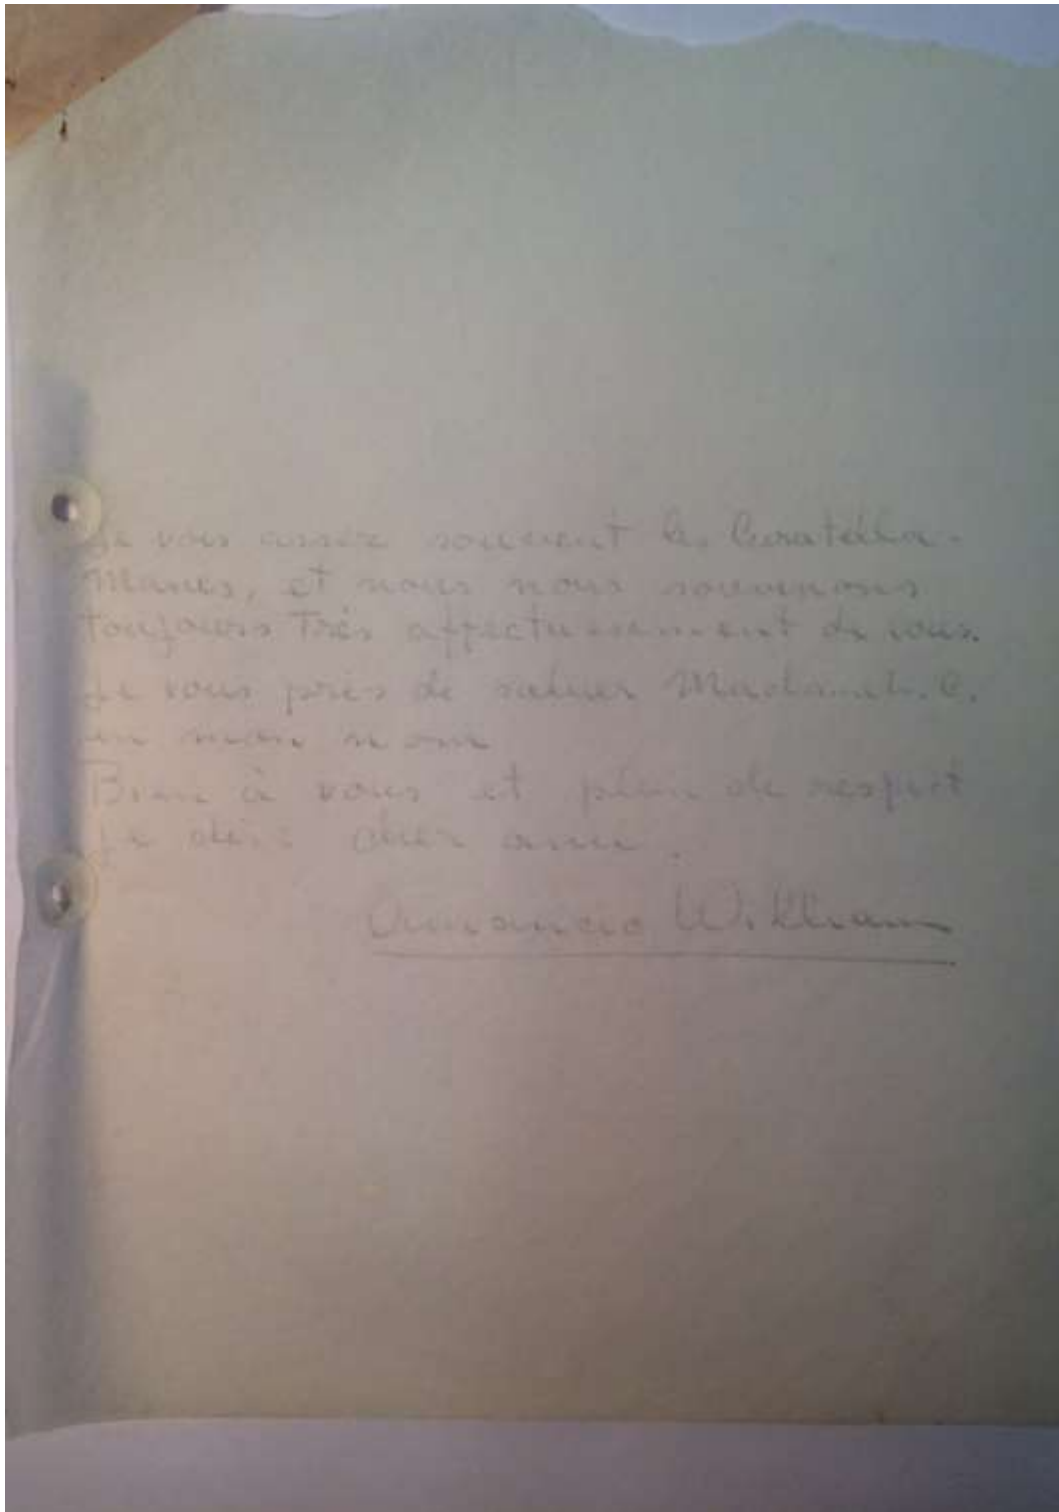 Je vois assez souvent les Curatella-
Manes, et nous nous souvenons
toujours très affectueusement de vous.
Je vous pries de saluer Madame L. C.
en mon nom
Bien à vous et plein de respect
je cher ami.
Amancio Williams